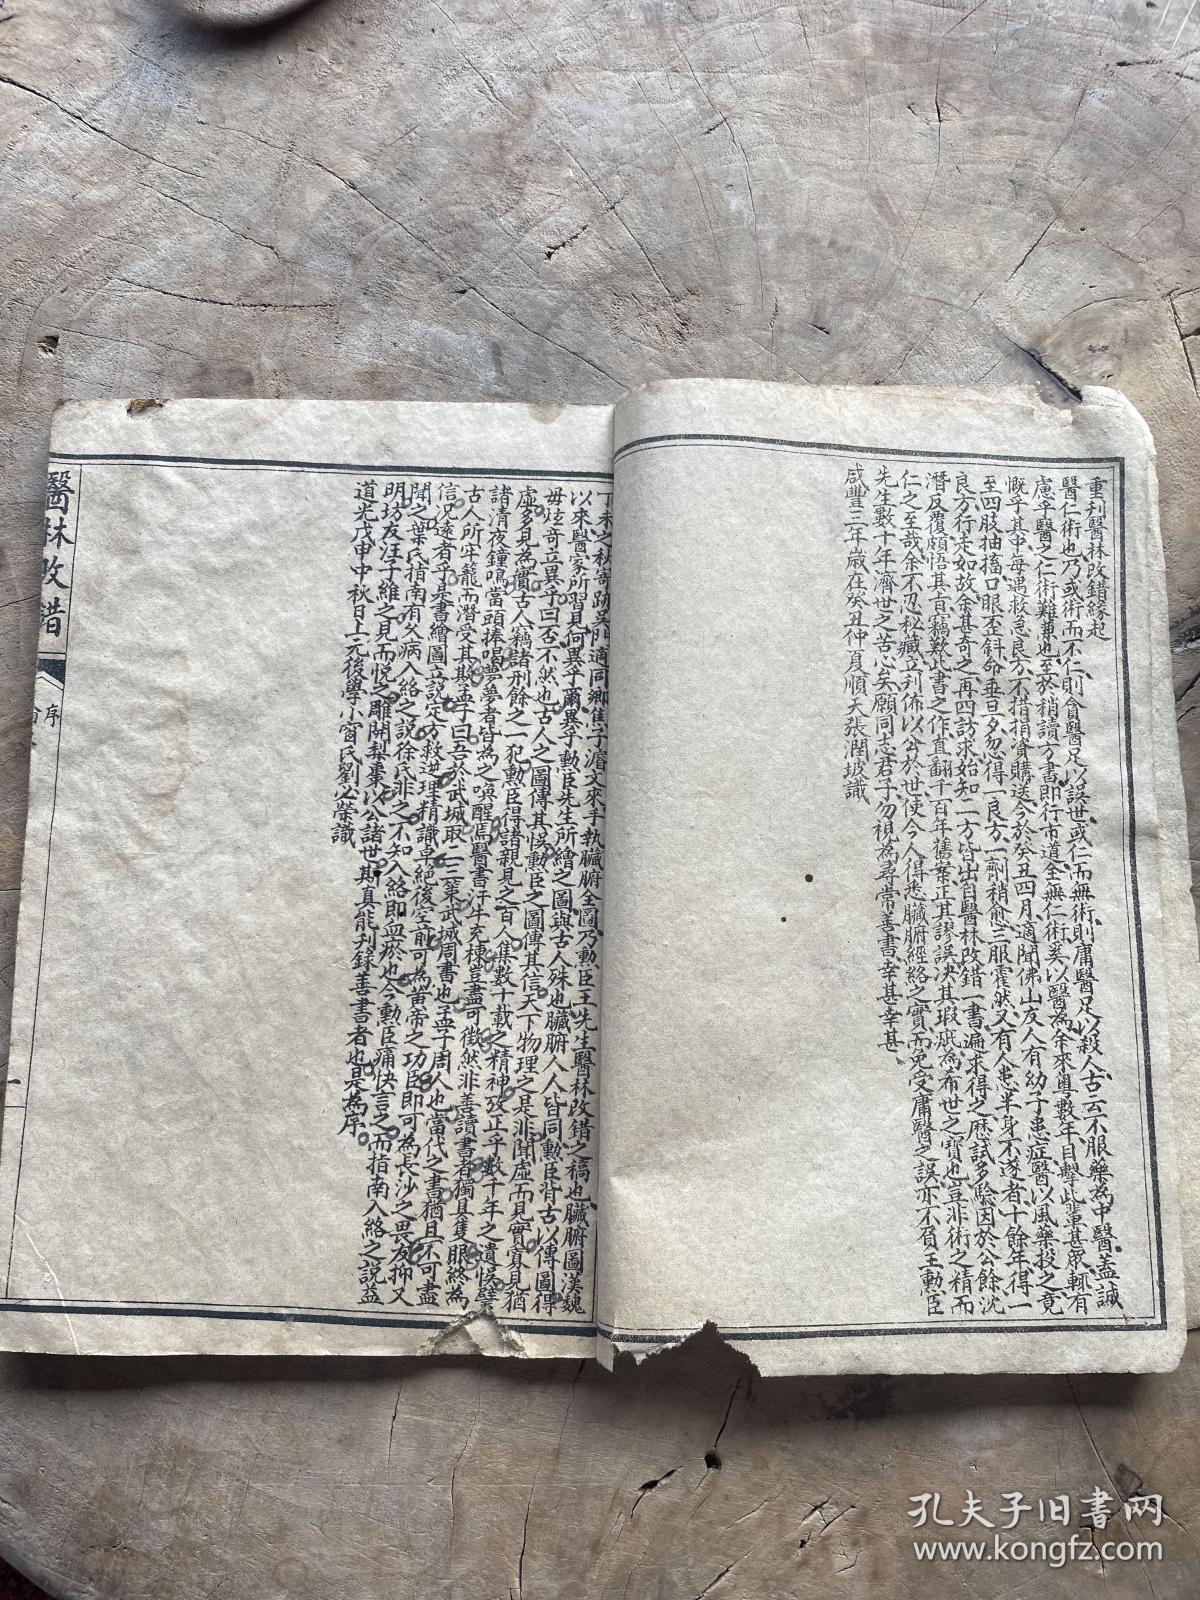 重刋醫林改錯緣起
醫仁術也乃或術而不仁則貪醫足以誤世或仁而無術則庸醫足以殺人古云不服藥為中醫蓋誠
慮乎醫之仁術難兼也至於稍讀方書即行市道全無仁術奚以醫為余來粵數年目擊此輩甚眾輒有
慨乎其中每遇救急良方不惜捐資購送今於癸丑四月適聞佛山友人有幼子患症醫以風藥投之竟
至四肢抽搐口眼歪斜命垂旦夕忽得一良方一劑稍愈三服霍然又有人患半身不遂者十餘年得一
良方行走如故余甚奇之再四訪求始知二方皆出自醫林改錯一書遍求得之歷試多驗因於公餘沈
潛反覆頗悟其旨竊歎此書之作直翻千百年舊案正其謬誤決其瑕疵為希世之寶也豈非術之精而
仁之至哉余不忍秘藏立刋佈以公於世使今人得悉臟腑經絡之實而免受庸醫之誤亦不負王勳臣
先生數十年濟世之苦心矣願同志君子勿視為尋常善書幸甚幸甚
咸豐三年歲在癸丑仲夏順天張潤坡識
丁未之秋寄跡吳門適同鄉焦子濬文來手執臟腑全圖乃勳臣王先生醫林改錯之稿也臟腑圖漢魏
以來醫家所習見何異乎爾異乎勳臣先生所繪之圖與古人殊也臟腑人人皆同勳臣背古以傳圖得
毋炫奇立異乎曰否不然也古人之圖傳其悞勳臣之圖傳其信天下物理之是非聞虛而見實寡見猶
虛多見為實古人竊諸刑餘之一犯勳臣得諸親見之百人集數十載之精神攷正乎數千年之遺悞譬
諸清夜鐘鳴當頭棒喝夢夢者皆為之喚醒焉醫書汗牛充棟豈盡可徵然非善讀書者獨具隻眼終為
古人所牢籠而潛受其欺孟子曰吾於武城取二三策武城周書也孟子周人也當代之書猶且不可盡
信況遠者乎是書繪圖立說定方救逆理精識卓絕後空前可為黃帝之功臣即可為長沙之畏友抑又
聞之葉氏指南有久病入絡之說徐氏非之不知入絡即血瘀也今勳臣痛快言之而指南入絡之說益
明坊友汪子維之見而悅之雕開梨棗以公諸世斯真能刋錄善書者也是為序
道光戊申中秋日上元後學小窗氏劉必榮識
醫林改錯
序
一
孔夫子旧书网
www.kongfz.com